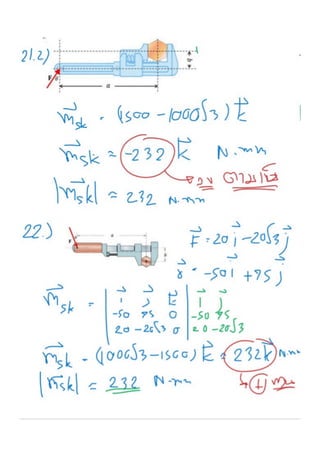 21.2)
F
a
m⃗sk = (1500 - 1000√3) k⃗
m⃗sk = -232 k⃗ N.mm
|m⃗sk| = 232 N.mm
22.)
F
a
F⃗ = 20 i⃗ - 20√3 j⃗
r⃗ = -50 i⃗ + 75 j⃗
m⃗sk = | i⃗ j⃗ k⃗ | i⃗ j⃗
-50 75 0 | -50 75
20 -20√3 0 | 20 -20√3
m⃗sk = (1000√3 - 1500) k⃗ = 232 k⃗ N.mm
(+)
|m⃗sk| = 232 N.mm